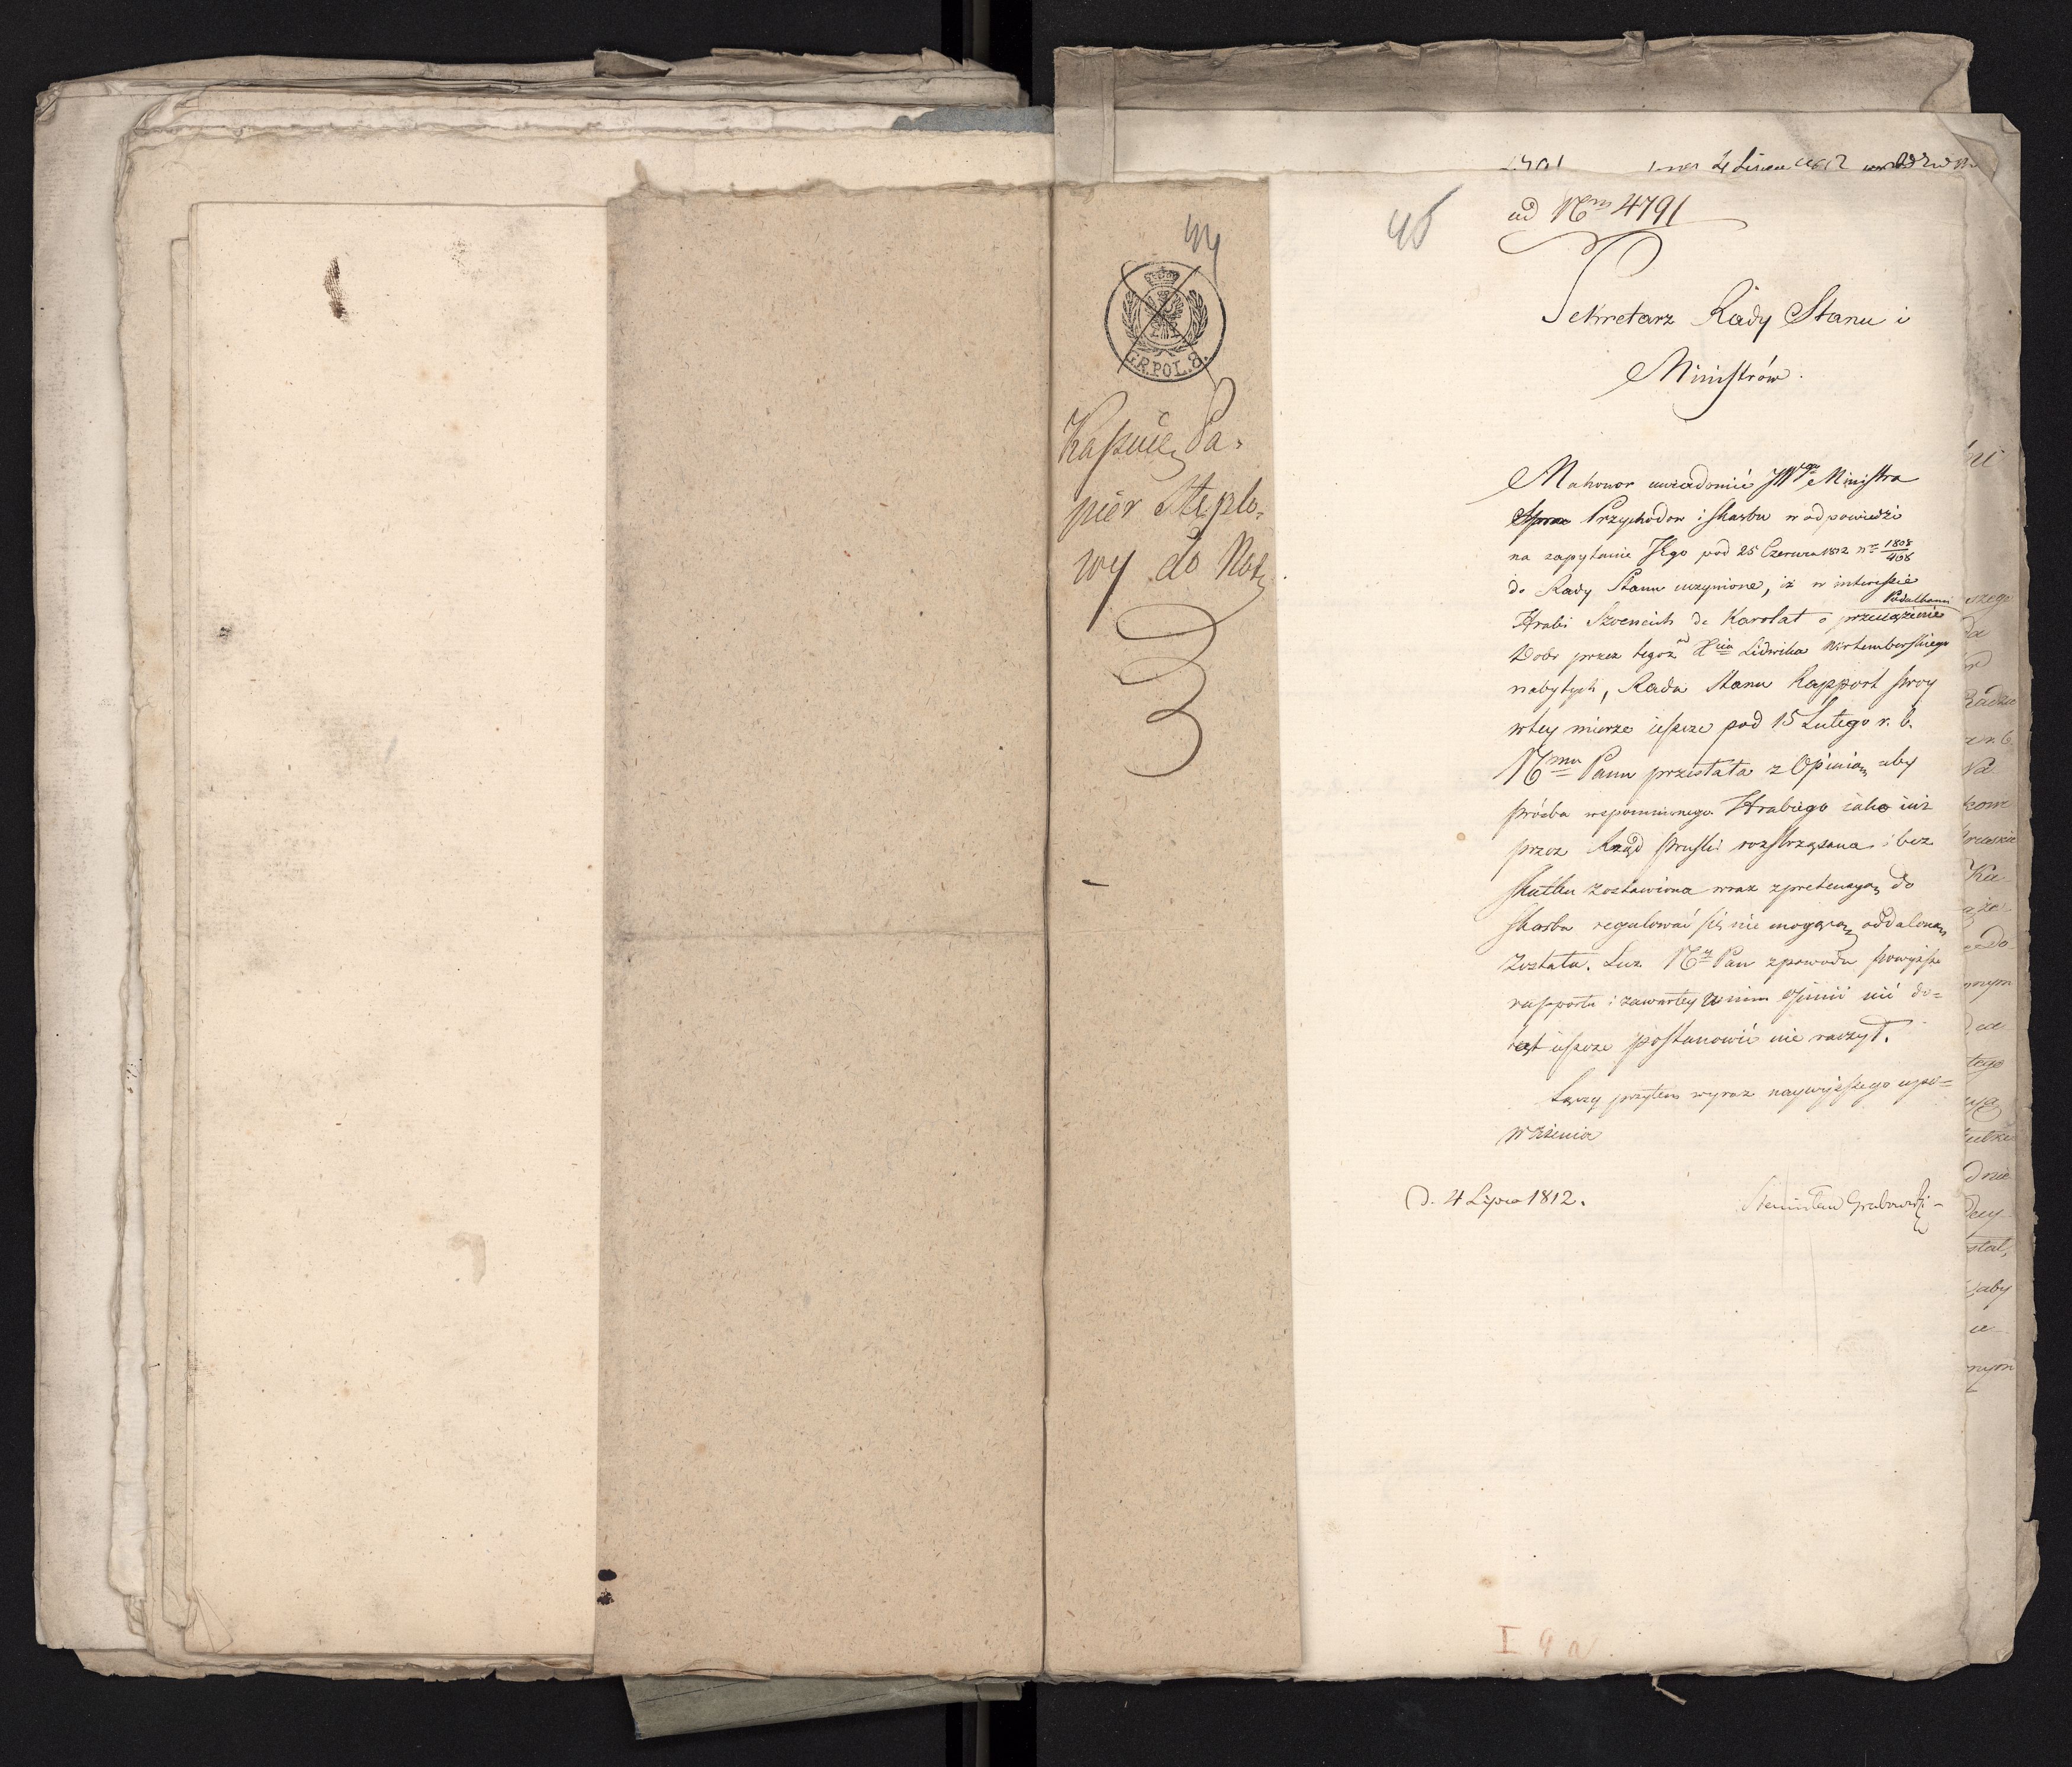 44
G.R.POL.8.
Kassuię Pa-
pier Stęplo-
wy do Not
45
4 Lipca 1812
ad Nrm 4791
Sekretarz Rady Stanu i
Ministrów.
Ma honor uwiadomić JWgo Ministra
Przychodow i Skarbu w odpowiedzi
na zapytanie JEgo pod 25 Czerwca 1812 nro
do Rady Stanu uczynione, iż w interessie
Hrabi Szoeneich de Karolat o przeciążenie Podatkami
Dobr przez tegoż od Xcia Ludwika Wirtemberskiego
nabytych, Rada Stanu Rapport swoy
w tey mierze ieszcze pod 15 Lutego r. b.
Nmu Panu przesłała z Opinią aby
prośba wspomnionego Hrabiego iako iuż
przez Rząd pruski rozstrząsana i bez
skutku zostawiona wraz z pretensyą do
skarbu regulować się nie mogącą oddaloną
została. Lecz Ny Pan z powodu powyższe
rapportu i zawartey w nim opinii nic do-
tąd ieszcze postanowić nie raczył.
Łączy przytem wyraz naywyższego upo-
ważenia
D. 4 Lipca 1812.
Stanisław Grabowski
I 9 a